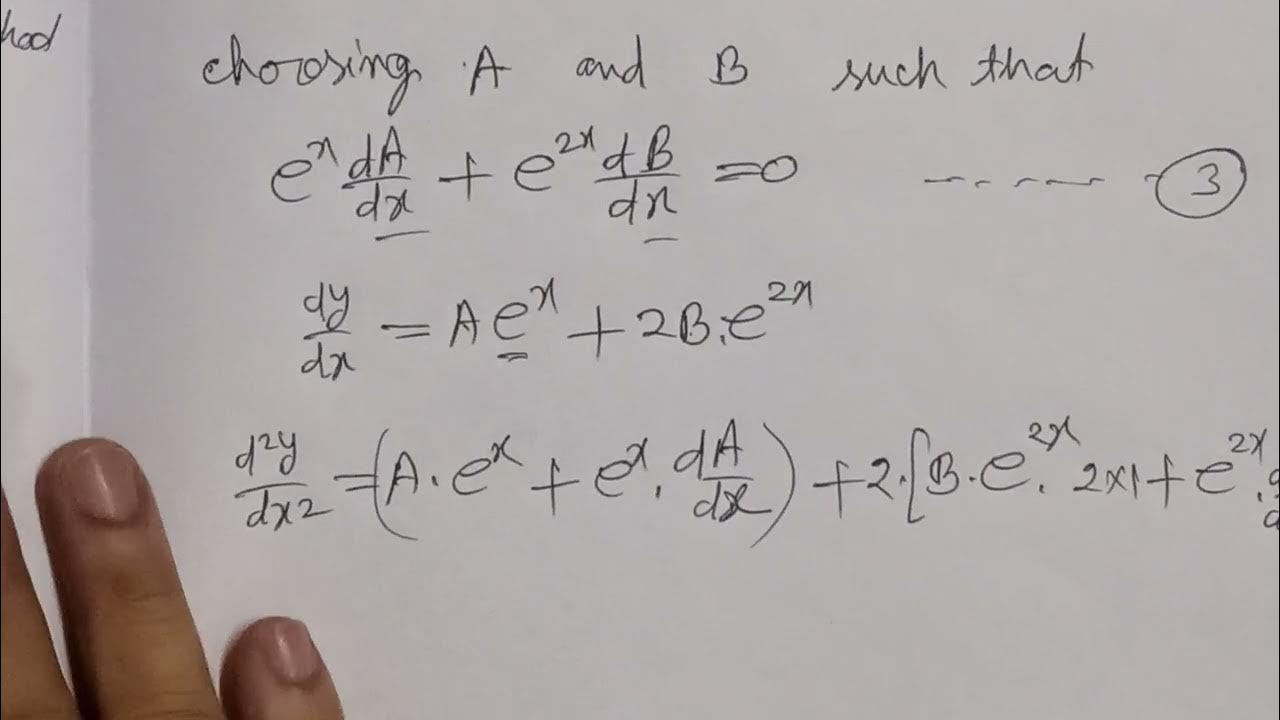 hod
choosing A and B such that
e^x dA/dx + e^2x dB/dx = 0 ------- (3)
dy/dx = A e^x + 2B.e^2x
d^2y/dx2 = (A.e^x + e^x.dA/dx) + 2.[B.e^2x. 2x1 + e^2x.